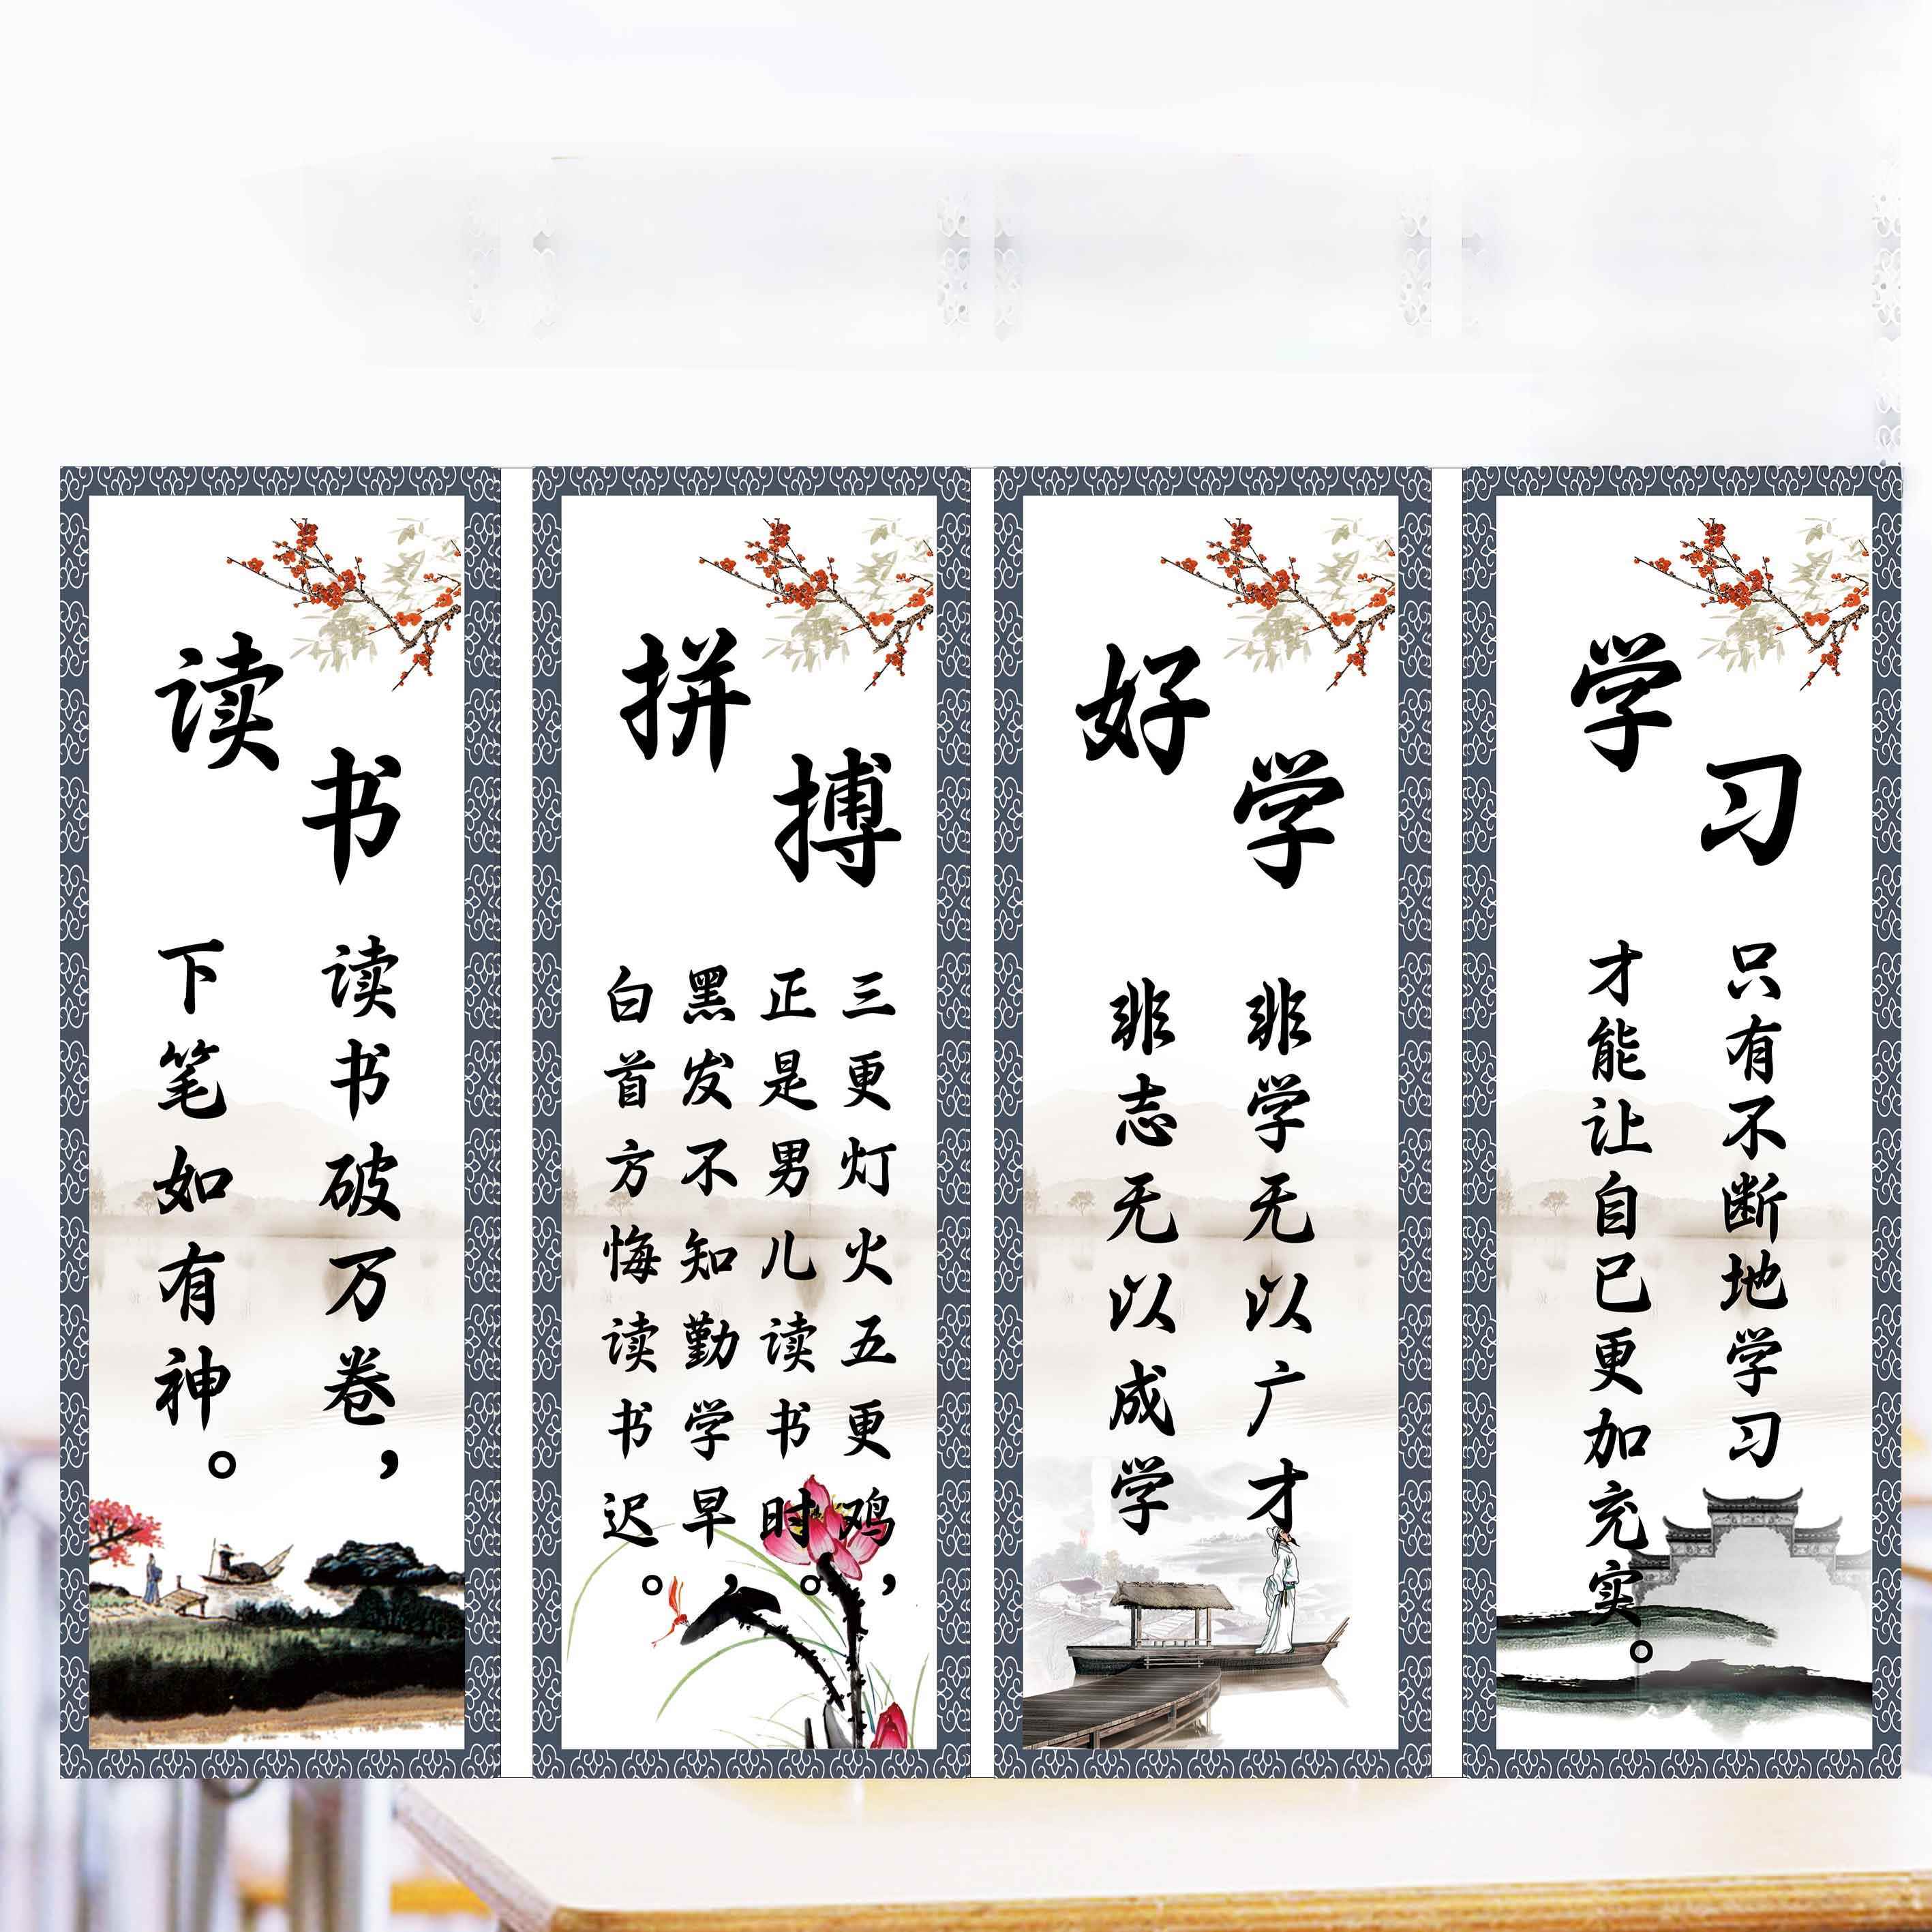 读书
读书破万卷，
下笔如有神。
拼搏
三更灯火五更鸡，
正是男儿读书时。
黑发不知勤学早，
白首方悔读书迟。
好学
非学无以广才
非志无以成学
学习
只有不断地学习
才能让自己更加充实。